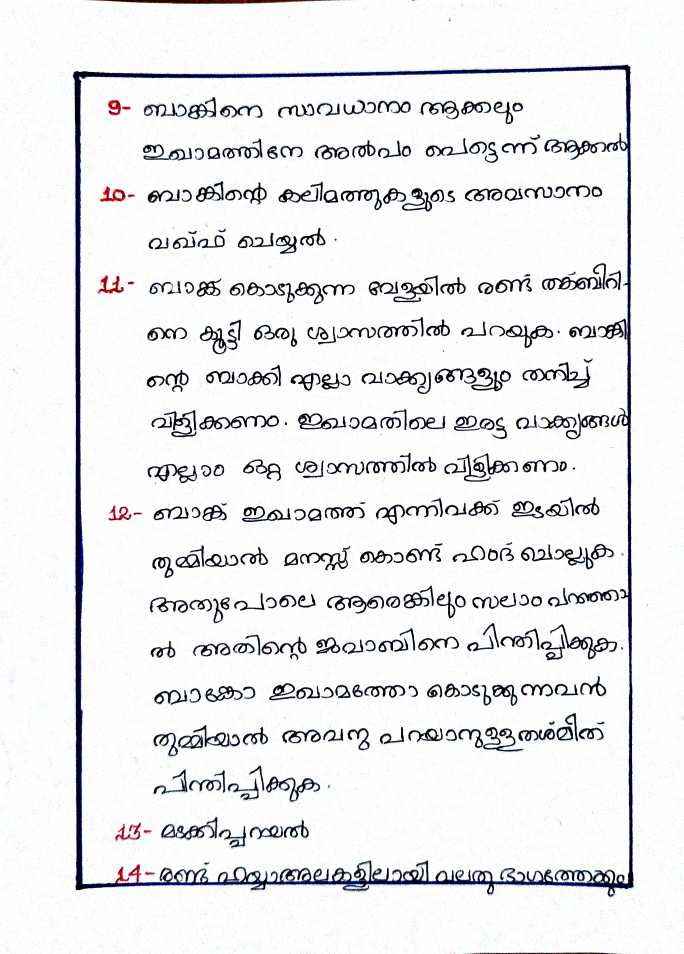 9- ബാങ്കിനെ സാവധാനം ആക്കലും
ഇഖാമത്തിനേ അൽപം പെട്ടെന്ന് ആക്കൽ
10- ബാങ്കിന്റെ കലിമത്തുകളുടെ അവസാനം
വഖ്ഫ് ചെയ്യൽ.
11- ബാങ്ക് കൊടുക്കുന്ന വേളയിൽ രണ്ട് തക്ബീറി-
നെ കൂട്ടി ഒരു ശ്വാസത്തിൽ പറയുക. ബാങ്കി
ന്റെ ബാക്കി എല്ലാ വാക്യങ്ങളും തനിച്ച്
വിളിക്കണം. ഇഖാമതിലെ ഇരട്ട വാക്യങ്ങൾ
എല്ലാം ഒറ്റ ശ്വാസത്തിൽ വിളിക്കണം.
12- ബാങ്ക് ഇഖാമത്ത് എന്നിവക്ക് ഇടയിൽ
തുമ്മിയാൽ മനസ്സ് കൊണ്ട് ഹംദ് ചൊല്ലുക.
അതുപോലെ ആരെങ്കിലും സലാം പറഞ്ഞാ
ൽ അതിന്റെ ജവാബിനെ പിന്തിപ്പിക്കുക.
ബാങ്കോ ഇഖാമത്തോ കൊടുക്കുന്നവൻ
തുമ്മിയാൽ അവനു പറയാനുള്ള തശ്മീത്
പിന്തിപ്പിക്കുക.
13- മടക്കിപ്പറയൽ
14- രണ്ട് ഹയ്യാഅലകളിലായി വലതു ഭാഗത്തേക്കും